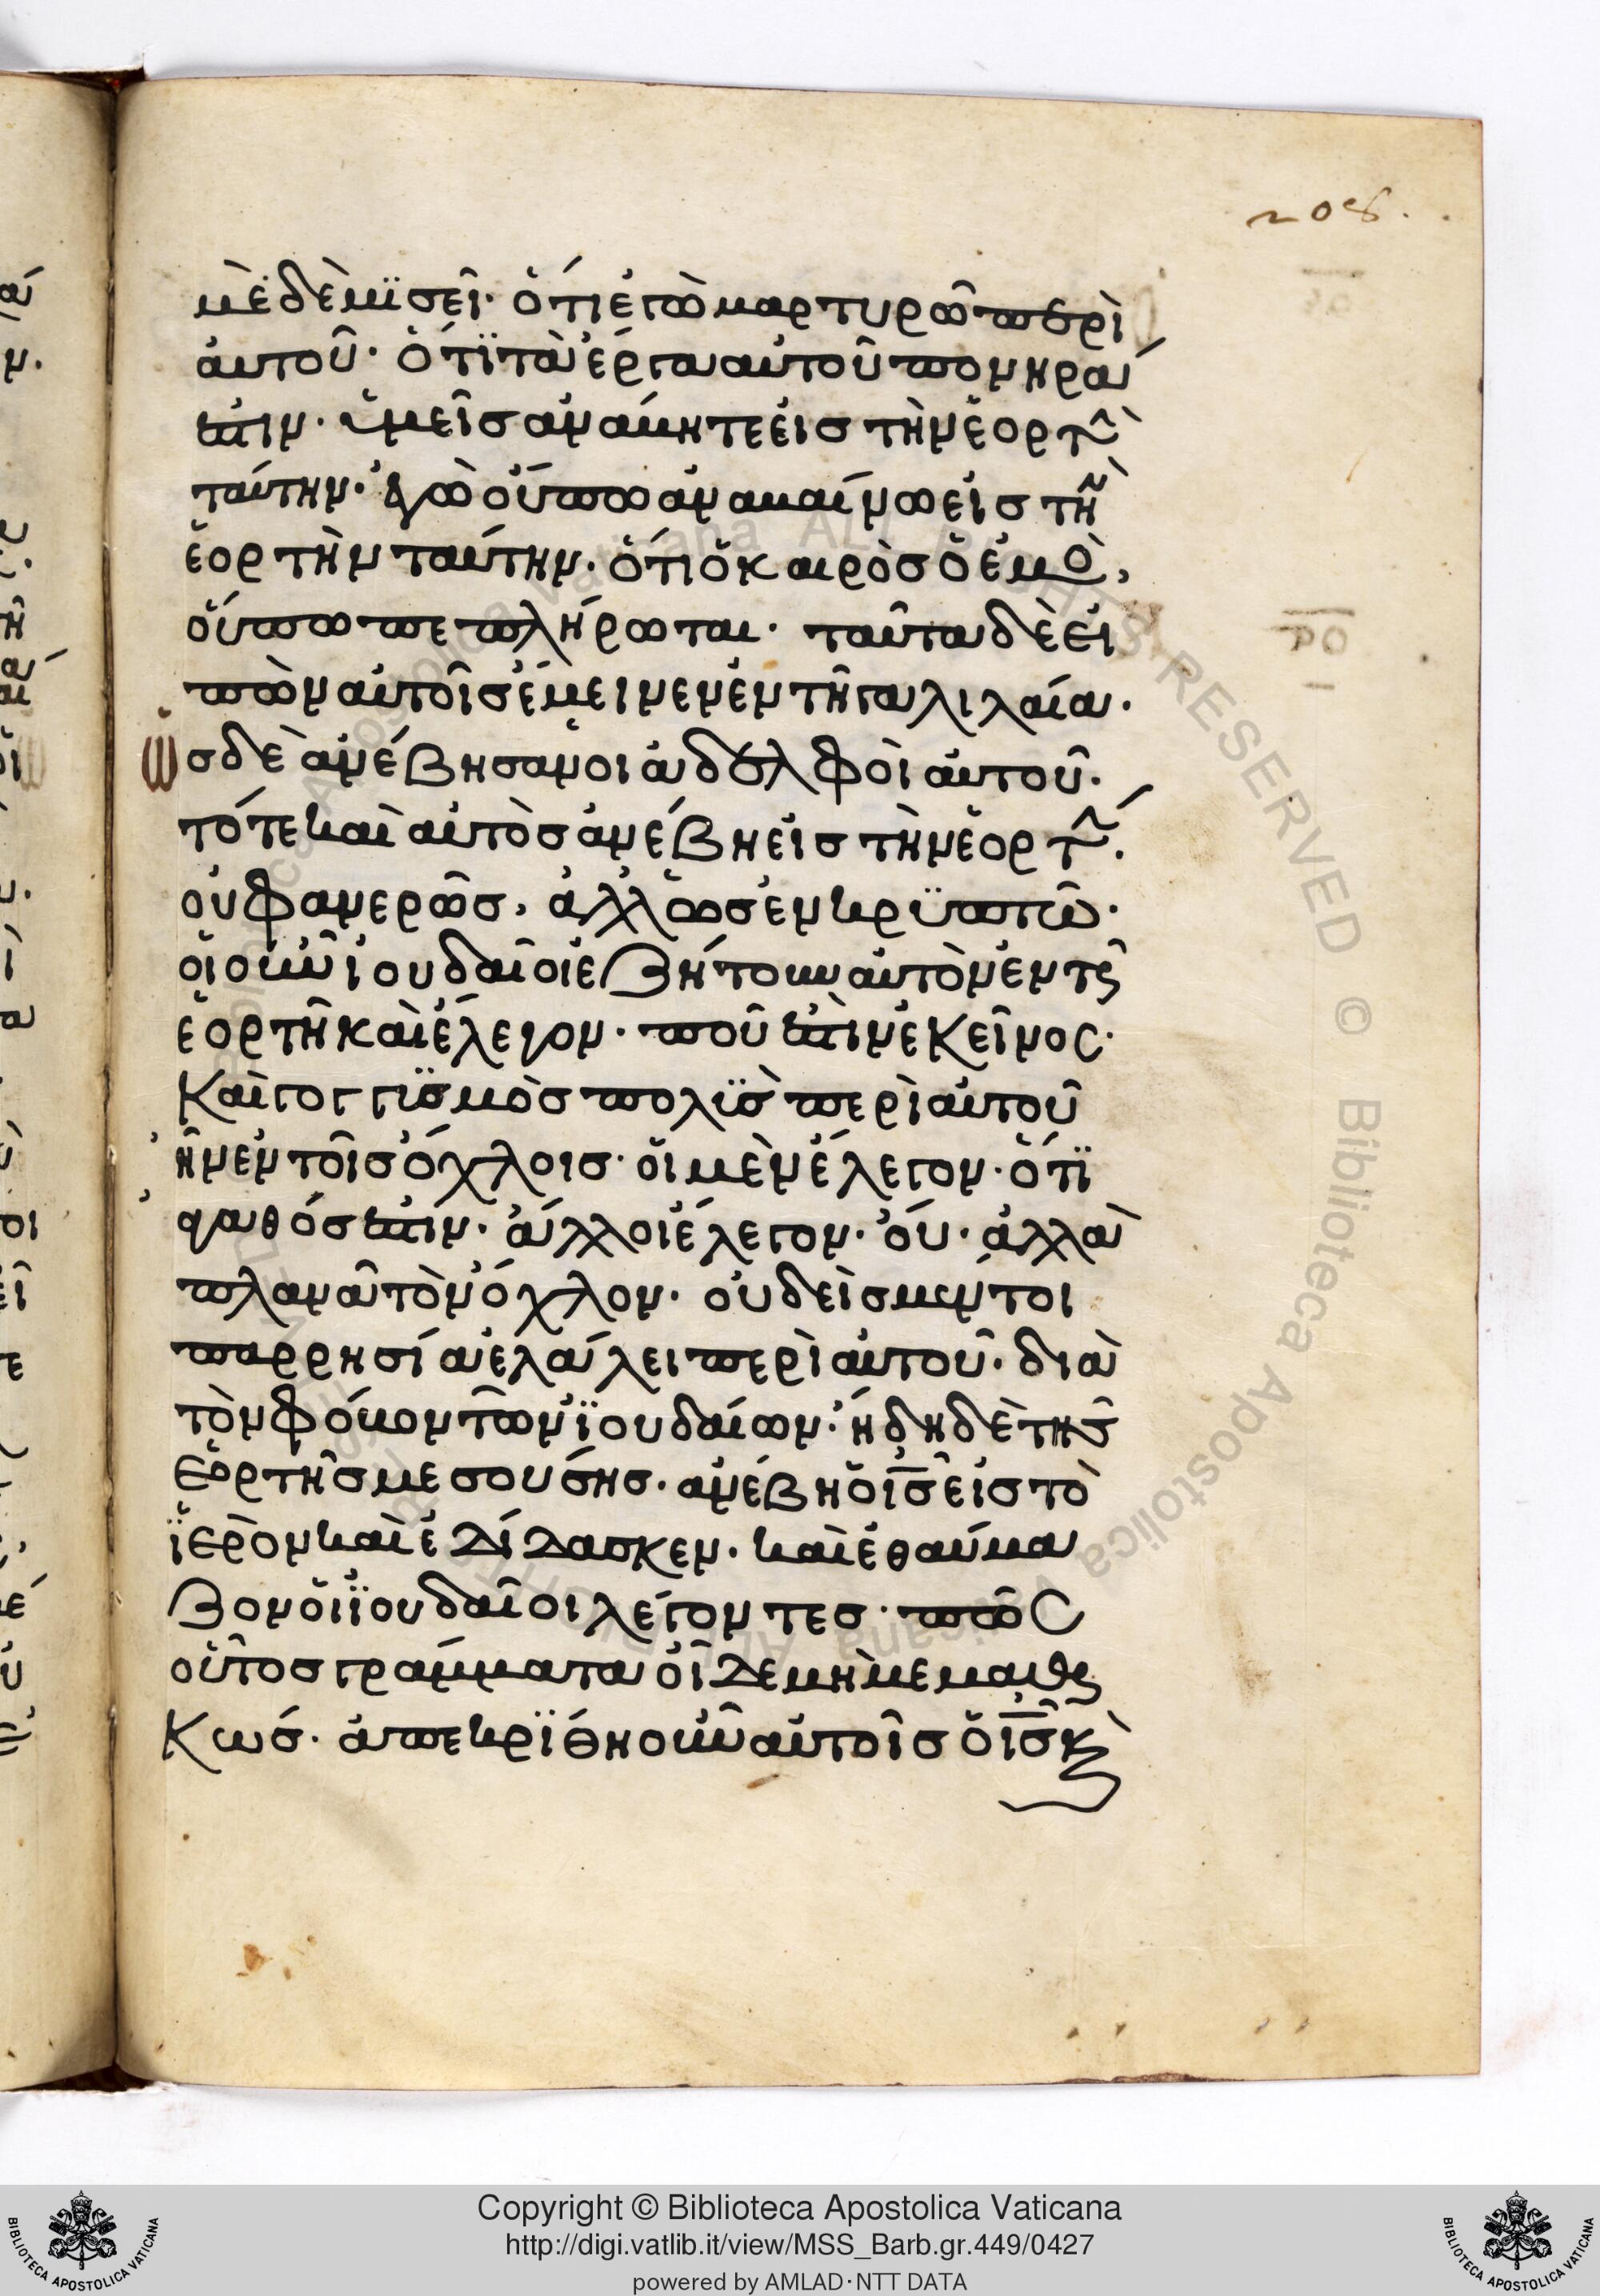 208.
μὲ δὲ μϊσεῖ· ὅτι ἐγὼ μαρτυρῶ περὶ
αὐτοῦ· ὅτϊ τὰ ἔργα αὐτοῦ πονηρά
ἐστιν· ὑμεῖσ ἀνάβητε εἰσ τὴν ἑορτὴ
ταύτην· ἐγὼ οὔπω ἀναβαίνω εἰσ τὴ
ἑορτὴν ταύτην· ὅτι ὁ καιρὸσ ὁ ἐμὸ,
οὔπω πεπλήρωται· ταῦτα δὲ εἰ
πὼν αὐτοῖσ ἔμεινεν ἐν τῆ γαλιλαία·
ὡσ δὲ ἀνέβησαν οἱ ἀδελφοὶ αὐτοῦ·
τότε καὶ αὐτὸσ ἀνέβη εἰσ τὴν ἑορτὴ.
οὐ φανερῶσ, ἀλλ' ὡσ ἐν κρϋπτῶ·
οἱ οὖν ἰουδαῖοι ἐζήτουν αὐτὸν ἐν τῆ
ἑορτῆ καὶ ἔλεγον· ποῦ ἐστὶν ἐκεῖνος·
Καὶ γογγϋσμὸσ πολϋσ περὶ αὐτοῦ
ἦν ἐν τοῖσ ὄχλοισ· οἱ μὲν ἔλεγον· ὅτϊ
ἀγαθόσ ἐστιν· ἄλλοι ἔλεγον· οὐ· ἀλλὰ
πλανᾶ τὸν ὄχλον· οὐδεὶσ μέντοι
παρρησία ἐλάλει περὶ αὐτοῦ· διὰ
τὸν φόβον τῶν ἰουδαίων· ἤδη δὲ τῆσ
ἑορτῆσ μεσούσησ· ἀνέβη ὁ ισ εἰσ τὸ
ἱερὸν καὶ ἐδίδασκεν· καὶ ἐθαύμα
ζον οἱ ἰουδαῖοι λέγοντεσ· πῶς
οὗτοσ γράμματα οἶδε μὴ μεμαθη
Κώσ· ἀπεκρϊθη οὖν αὐτοῖσ ὁ ισ κὶ
ρο
Copyright © Biblioteca Apostolica Vaticana
http://digi.vatlib.it/view/MSS_Barb.gr.449/0427
powered by AMLAD·NTT DATA